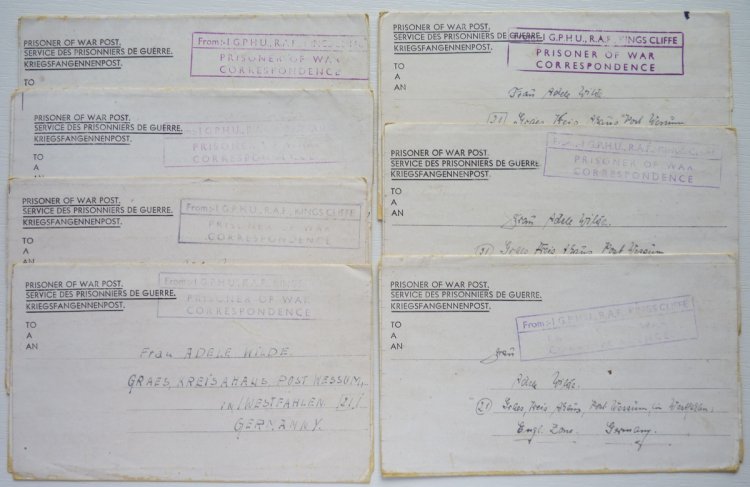 PRISONER OF WAR POST.
SERVICE DES PRISONNIERS DE GUERRE.
KRIEGSFANGENNENPOST.
TO
A
AN
From:- I G.P.H.U., R.A.F., KINGS CLIFFE
PRISONER OF WAR
CORRESPONDENCE
PRISONER OF WAR POST.
SERVICE DES PRISONNIERS DE GUERRE.
KRIEGSFANGENNENPOST.
TO
A
From:- I G.P.H.U., R.A.F.,
PRISONER OF WAR
CORRESPONDENCE
PRISONER OF WAR POST.
SERVICE DES PRISONNIERS DE GUERRE.
KRIEGSFANGENNENPOST.
TO
A
AN
From:- I G.P.H.U., R.A.F., KINGS CLIFFE
PRISONER OF WAR
CORRESPONDENCE
PRISONER OF WAR POST.
SERVICE DES PRISONNIERS DE GUERRE.
KRIEGSFANGENNENPOST.
TO
A
AN
From:- I G.P.H.U., R.A.F., KINGS
PRISONER OF WAR
CORRESPONDENCE
Frau ADELE WILDE.
GRAES, KREIS AHAUS POST WESSUM,
IN/WESTFAHLEN /21/
GERMANY.
PRISONER OF WAR POST.
SERVICE DES PRISONNIERS DE GUERRE.
KRIEGSFANGENNENPOST.
TO
A
AN
From:- I G.P.H.U., R.A.F., KINGS CLIFFE
PRISONER OF WAR
CORRESPONDENCE
Frau Adele Wilde
(21) Graes Kreis Ahaus Post Wessum
PRISONER OF WAR POST.
SERVICE DES PRISONNIERS DE GUERRE.
KRIEGSFANGENNENPOST.
TO
A
AN
From:- I G.P.H.U., R.A.F., KINGS C
PRISONER OF WAR
CORRESPONDENCE
Frau Adele Wilde.
(21) Graes Kreis Ahaus Post Wessum
PRISONER OF WAR POST.
SERVICE DES PRISONNIERS DE GUERRE.
KRIEGSFANGENNENPOST.
TO
A
AN
From:- I G.P.H.U., R.A.F., KINGS CLIFFE
Frau
Adele Wilde.
(21) Graes, Kreis Ahaus, Post Wessum, in Westfalen.
Engl. Zone. Germany.